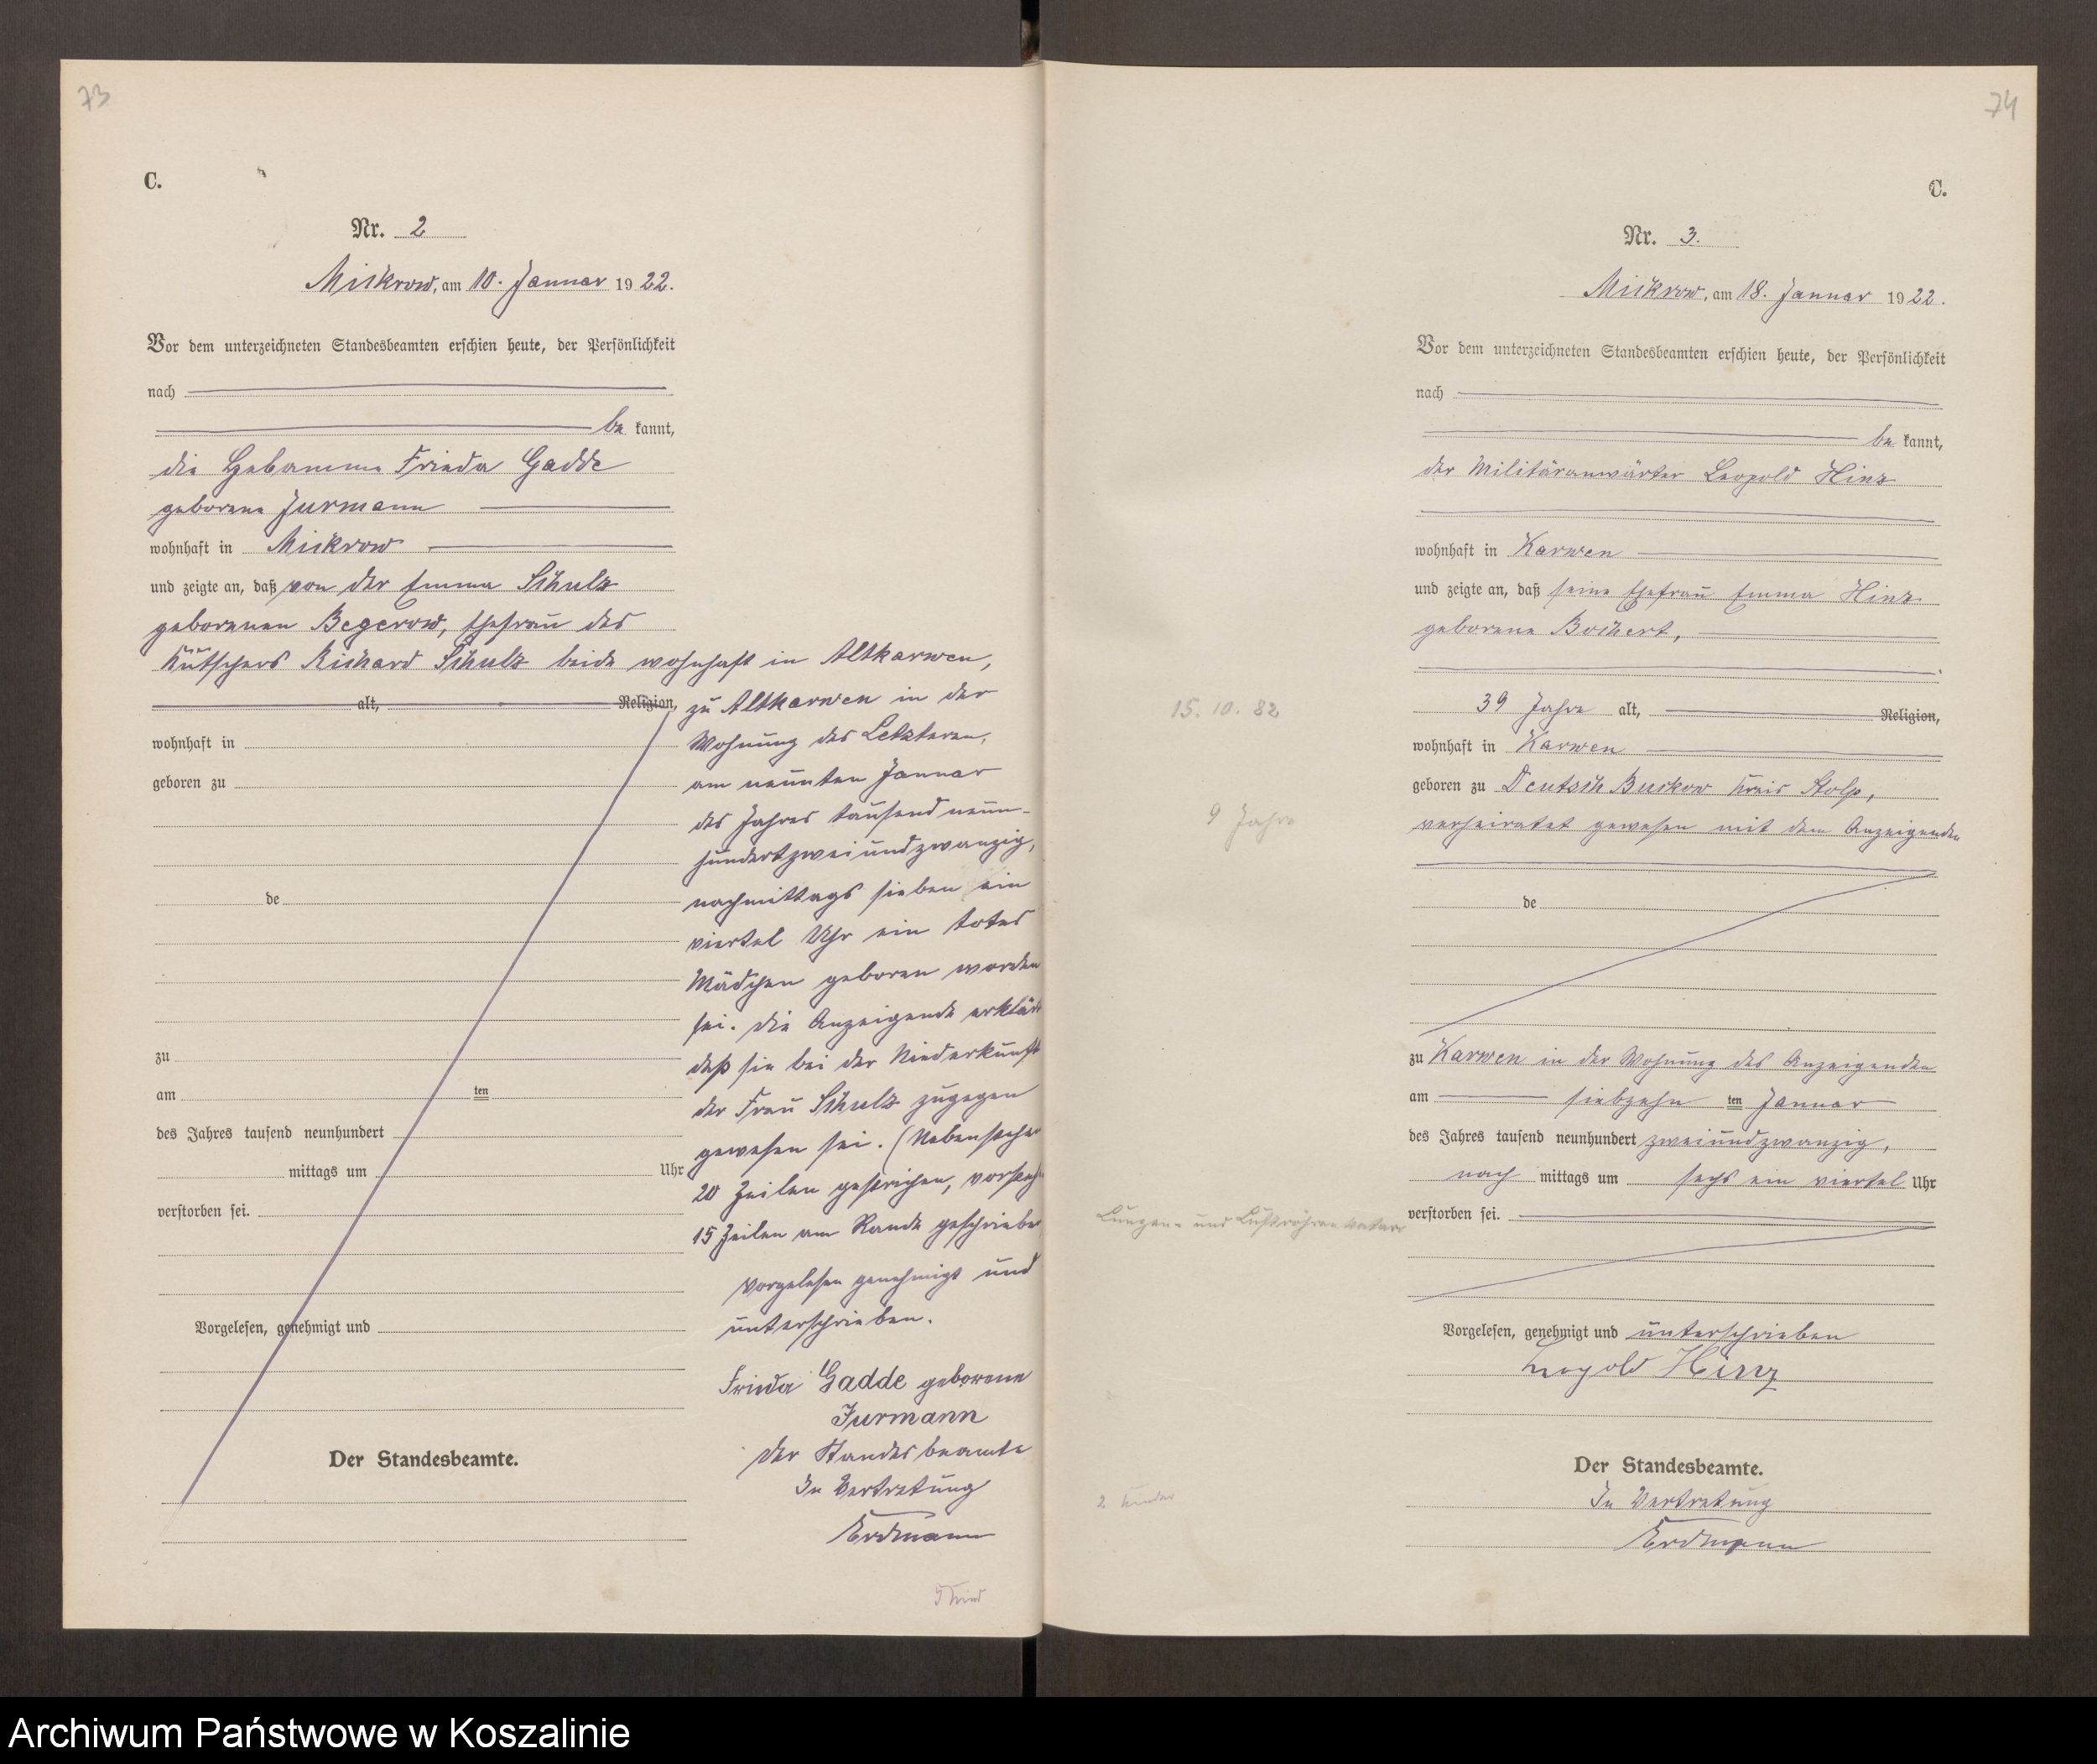 73
C.
Nr. 2
Mickrow, am 10. Januar 1922.
Vor dem unterzeichneten Standesbeamten erschien heute, der Persönlichkeit
nach
be kannt,
die Hebamme Frieda Gadde
geborene Jurmann
wohnhaft in Mickrow
und zeigte an, daß von der Emma Schulz
geborenen Begerow, Ehefrau des
Kutschers Richard Schulz beide wohnhaft in Altkarwen,
alt, Religion,
wohnhaft in
geboren zu
de
zu
am ten
des Jahres tausend neunhundert
mittags um Uhr
verstorben sei.
Vorgelesen, genehmigt und
Der Standesbeamte.
zu Altkarwen in der
Wohnung des Letzteren,
am neunten Januar
des Jahres tausend neun-
hundertzweiundzwanzig,
nachmittags sieben ein
viertel Uhr ein totes
Mädchen geboren worden
sei. Die Anzeigende erklärt
daß sie bei der Niederkunft
der Frau Schulz zugegen
gewesen sei. (Nebenstehe
20 Zeilen gestrichen, vorsteh
15 Zeilen am Rande geschrieben
Vorgelesen genehmigt und
unterschrieben.
Frieda Gadde geborene
Jurmann
Der Standesbeamte
In Vertretung
Erdmann
74
C.
Nr. 3.
Mickrow, am 18. Januar 1922.
Vor dem unterzeichneten Standesbeamten erschien heute, der Persönlichkeit
nach
be kannt,
der Militäranwärter Leopold Hinz
wohnhaft in Karwen
und zeigte an, daß seine Ehefrau Emma Hinz
geborene Bochert,
15.10.82
39 Jahre alt, Religion,
wohnhaft in Karwen
geboren zu Deutsch Buckow Kreis Stolp,
9 Jahre
verheiratet gewesen mit dem Anzeigenden
de
zu Karwen in der Wohnung des Anzeigenden
am siebzehn ten Januar
des Jahres tausend neunhundert zweiundzwanzig,
nach mittags um sechs ein viertel Uhr
Lungen- und Luftröhrenkatarr
verstorben sei.
Vorgelesen, genehmigt und unterschrieben
Leopold Hinz
Der Standesbeamte.
2 Kinder
In Vertretung
Erdmann
Archiwum Państwowe w Koszalinie